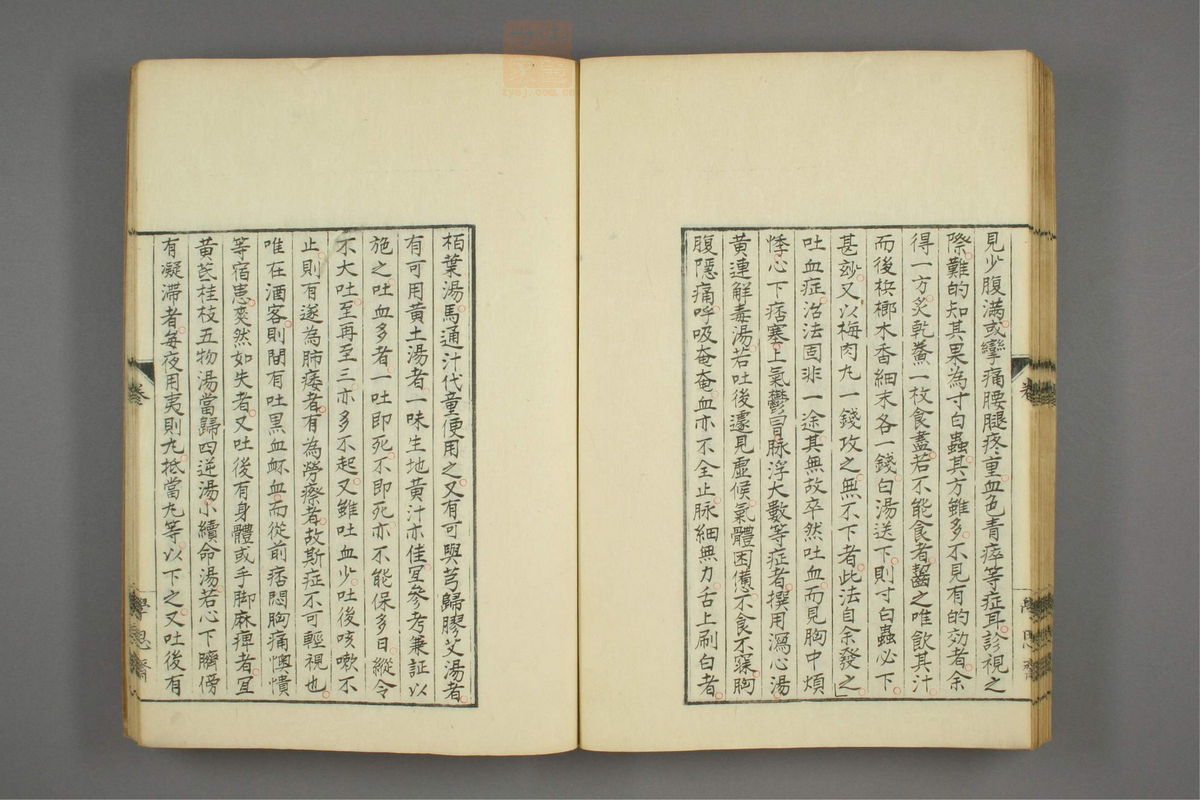 見少腹滿或攣痛腰腿疼重血色青瘁等症耳診視之
際難的知其果為寸白蟲其方雖多不見有的効者余
得一方炙乾鯗一枚食盡若不能食者齧之唯飲其汁
而後梹榔木香細末各一錢白湯送下則寸白蟲必下
甚玅又以梅肉丸一錢攻之無不下者此法自余發之
吐血症治法固非一途其無故卒然吐血而見胸中煩
悸心下痞塞上氣鬱冒脉浮大數等症者撰用瀉心湯
黄連解毒湯若吐後遽見虛候氣體困憊不食不寐胸
腹隱痛呼吸奄奄血亦不全止脉細無力舌上刷白者
栢葉湯馬通汁代童便用之又有可與芎歸膠艾湯者
有可用黄土湯者一味生地黄汁亦佳宜參考兼証以
施之吐血多者一吐即死不即死亦不能保多日縱令
不大吐至再至三亦多不起又雖吐血少吐後咳嗽不
止則有遂為肺痿者有為勞瘵者故斯症不可輕視也
唯在酒客則間有吐黒血衃血而從前痞悶胸痛懊憹
等宿患奕然如失者又吐後有身體或手脚麻痺者宜
黄芪桂枝五物湯當歸四逆湯小續命湯若心下臍傍
有凝滞者每夜用夷則丸抵當丸等以下之又吐後有
卷
學思齋